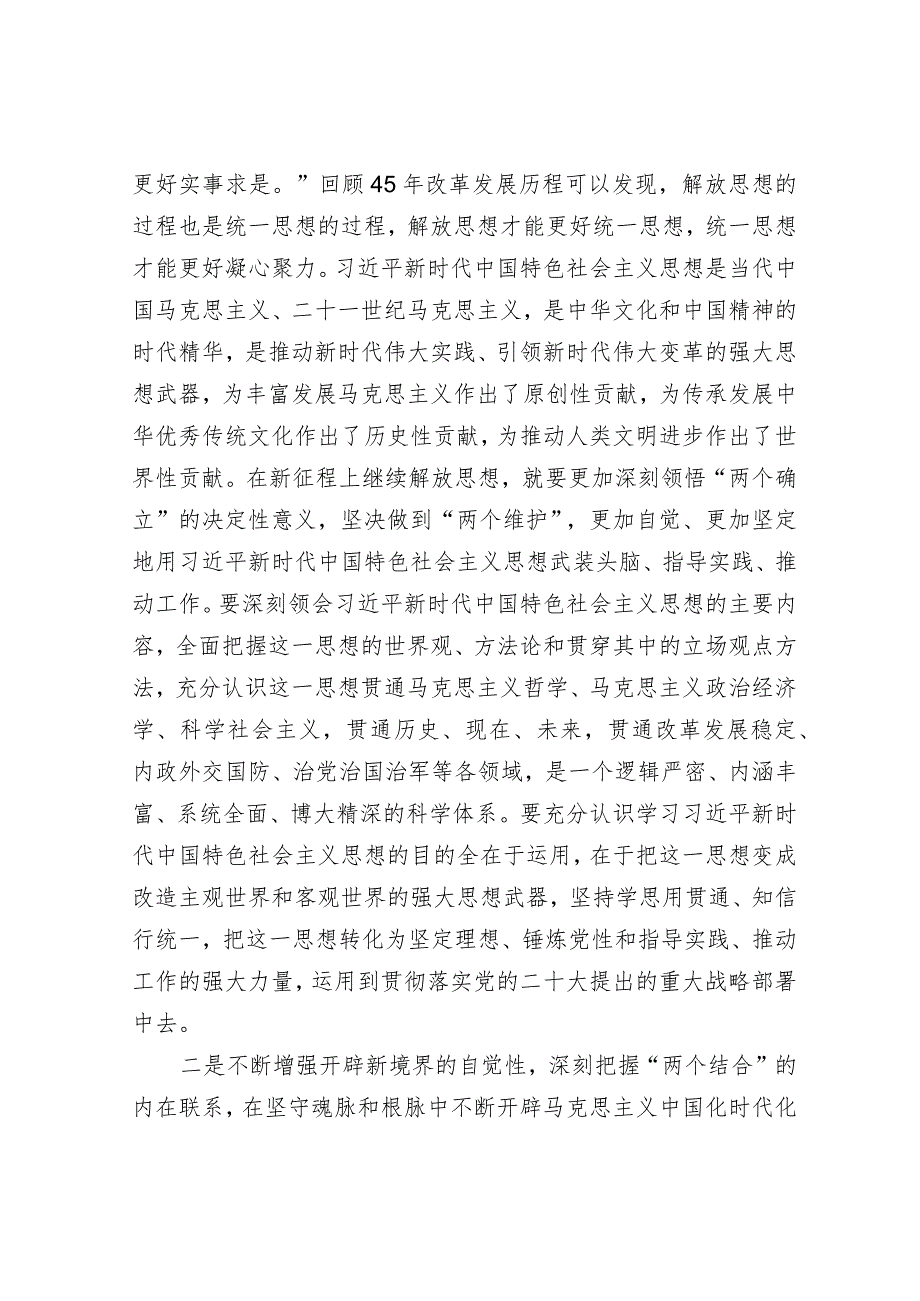 更好实事求是。”回顾 45 年改革发展历程可以发现，解放思想的
过程也是统一思想的过程，解放思想才能更好统一思想，统一思想
才能更好凝心聚力。习近平新时代中国特色社会主义思想是当代中
国马克思主义、二十一世纪马克思主义，是中华文化和中国精神的
时代精华，是推动新时代伟大实践、引领新时代伟大变革的强大思
想武器，为丰富发展马克思主义作出了原创性贡献，为传承发展中
华优秀传统文化作出了历史性贡献，为推动人类文明进步作出了世
界性贡献。在新征程上继续解放思想，就要更加深刻领悟“两个确
立”的决定性意义，坚决做到“两个维护”，更加自觉、更加坚定
地用习近平新时代中国特色社会主义思想武装头脑、指导实践、推
动工作。要深刻领会习近平新时代中国特色社会主义思想的主要内
容，全面把握这一思想的世界观、方法论和贯穿其中的立场观点方
法，充分认识这一思想贯通马克思主义哲学、马克思主义政治经济
学、科学社会主义，贯通历史、现在、未来，贯通改革发展稳定、
内政外交国防、治党治国治军等各领域，是一个逻辑严密、内涵丰
富、系统全面、博大精深的科学体系。要充分认识学习习近平新时
代中国特色社会主义思想的目的全在于运用，在于把这一思想变成
改造主观世界和客观世界的强大思想武器，坚持学思用贯通、知信
行统一，把这一思想转化为坚定理想、锤炼党性和指导实践、推动
工作的强大力量，运用到贯彻落实党的二十大提出的重大战略部署
中去。
二是不断增强开辟新境界的自觉性，深刻把握“两个结合”的
内在联系，在坚守魂脉和根脉中不断开辟马克思主义中国化时代化